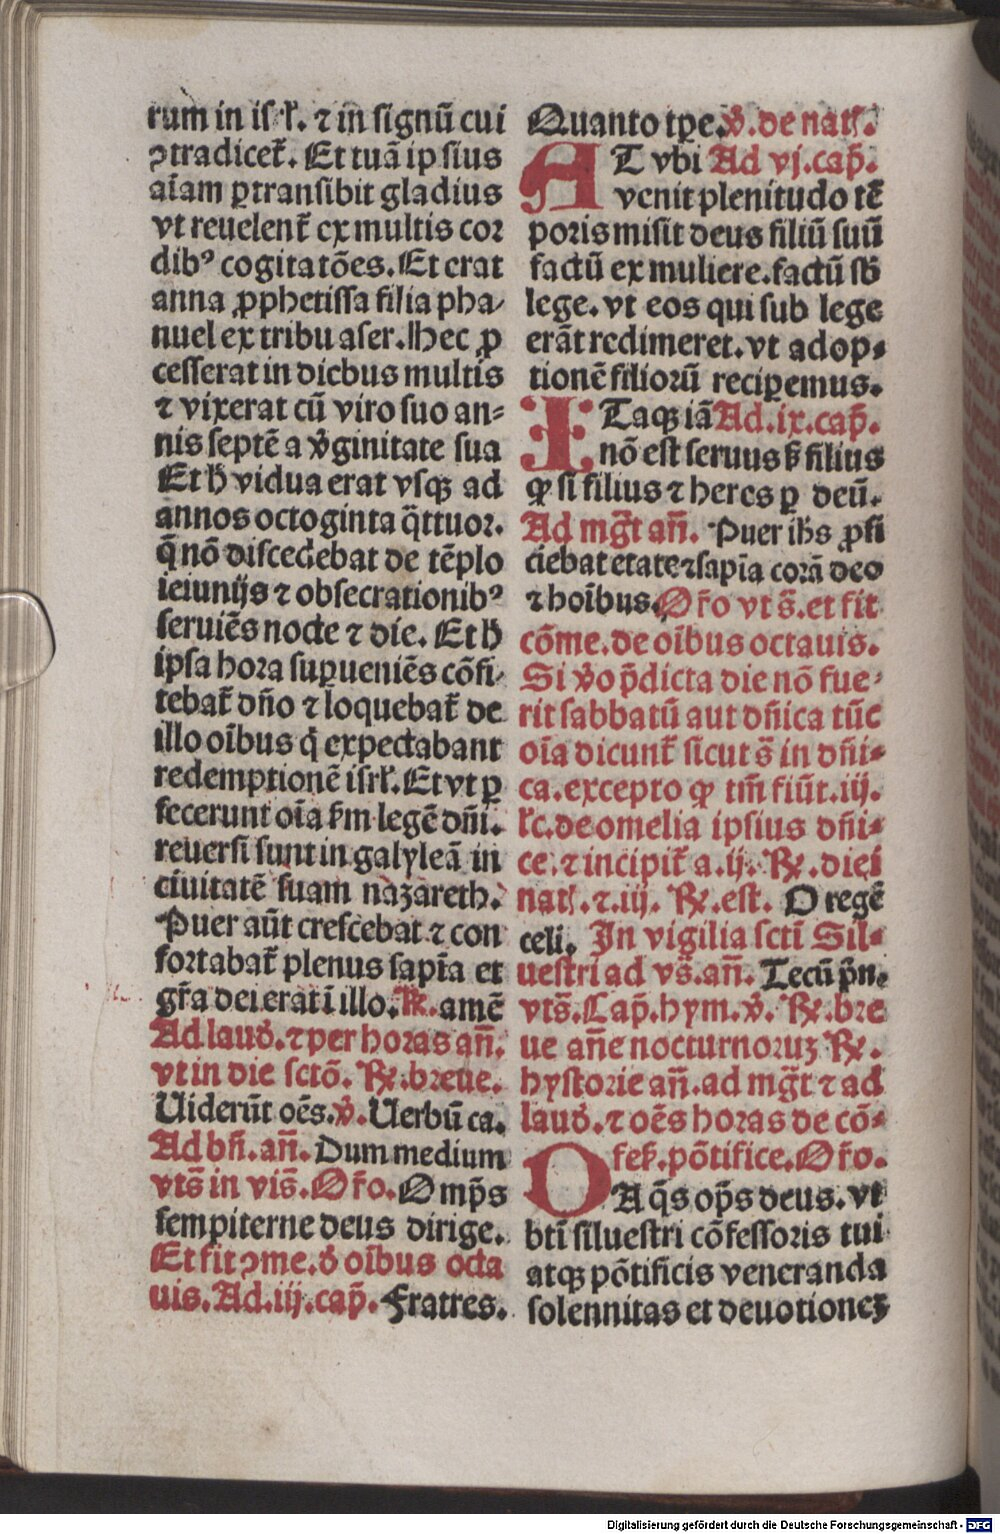 rum in isrl̄. ⁊ in signū cui
ꝯtradicet̄. Et tuā ip sius
aīam ꝑtransibit gladius
vt reuelent̄ ex multis cor
dibꝰ cogitatōes. Et erat
anna ꝓphetissa filia pha-
nuel ex tribu aser. hec ꝓ
cesserat in diebus multis
⁊ vixerat cū viro suo an-
nis septē a v̓ginitate sua
Et h̄ vidua erat vsqꝫ ad
annos octoginta q̄ttuor.
q̄ nō discedebat de tēplo
ieiunijs ⁊ obsecrationibꝰ
seruiēs nocte ⁊ die. Et h̄
ipsa hora suꝑueniēs cōfi-
tebat̄ dn̄o ⁊ loquebat̄ de
illo oībus q̄ expectabant
redemptionē isrl̄. Et vt ꝑ
fecerunt oīa ẜm legē dn̄i.
reuersi sunt in galyleā in
ciuitatē suam nazareth.
Puer aūt crescebat ⁊ con
fortabat̄ plenus sapīa et
gr̄a dei erat ī illo. ℟. amē
Ad laud̓. ⁊ per horas an̄.
vt in die sctō. ℟. breue.
Uiderūt oēs. v̓. Uerbū ca.
Ad bn̄. an̄. Dum medium
vts̄ in vis̄. Or̄o. Omp̄s
sempiterne deus dirige.
Et fit ꝯme. d̓ oībus octa
uis. Ad. iij. cap̄. Fratres.
Quanto tꝑe. v̓. de natꝭ.
AT vbi Ad vj. cap̄.
venit plenitudo tē
poris misit deus filiū suū
factū ex muliere. factū sb̄
lege. vt eos qui sub lege
erāt redimeret. vt adop-
tionē filiorū reciꝑemus.
ITaqꝫ iā Ad. ix. cap̄.
nō est seruus ẜ filius
ꝙ si filius ⁊ heres ꝑ deū.
Ad mḡt an̄. Puer ih̄s ꝓfi
ciebat etate ⁊ sapīa corā deo
⁊ hoībus. Or̄o vt s̄. et fit
cōme. de oībus octauis.
Si v̓o p̄dicta die nō fue-
rit sabbatū aut dn̄ica tūc
oīa dicunt̄ sicut s̄ in dn̄i-
ca. excepto ꝙ tm̄ fiūt. iij.
lc̄. de omelia ipsius dn̄i-
ce. ⁊ incipit̄ a. ij. ℟. diei
natꝭ. ⁊. iij. ℟. est. O regē
celi. In vigilia sctī Sil-
uestri ad vs̄. an̄. Tecū p̄n.
vts̄. Cap̄. hym. v̓. ℟. bre
ue an̄e nocturnoruꝫ ℟.
hystorie an̄. ad mḡt ⁊ ad
laud̓. ⁊ oēs horas de cō-
feẜ. pōtifice. Or̄o.
DA q̄s op̄s deus. vt
btī siluestri cōfessoris tui
atqꝫ pōtificis veneranda
solennitas et deuotioneꝫ
Digitalisierung gefördert durch die Deutsche Forschungsgemeinschaft - DFG